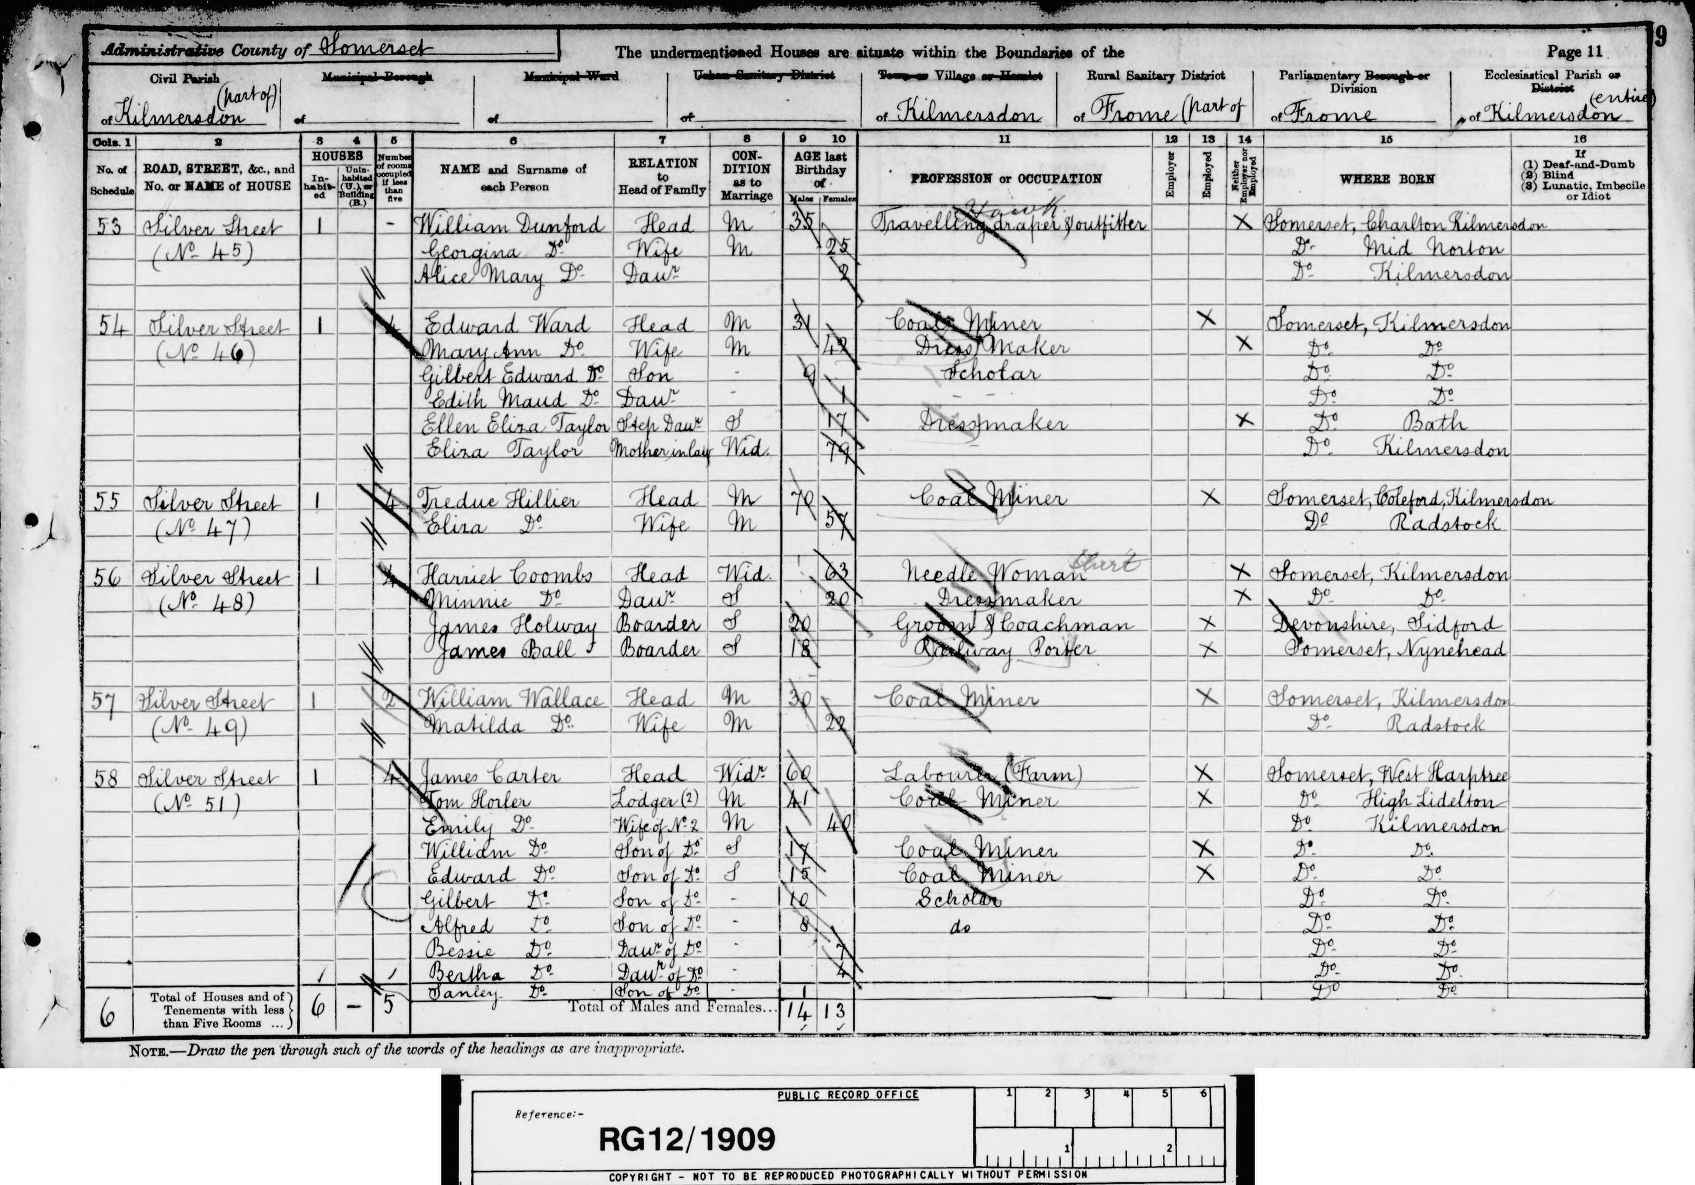 Administrative County of Somerset The undermentioned Houses are situate within the Boundaries of the Page 11 9
Civil Parish Municipal Borough Municipal Ward Urban Sanitary District Town or Village or Hamlet Rural Sanitary District Parliamentary Borough or Division Ecclesiastical Parish or District
of Kilmersdon (part of) of of of of Kilmersdon of Frome (part of of Frome of Kilmersdon (entire)
Cols. 1 2 3 4 5 6 7 8 9 10 11 12 13 14 15 16
No. of Schedule ROAD, STREET, &c., and No. or NAME of HOUSE HOUSES Inhabited Uninhabited (U.), or Building (B.) Number of rooms occupied if less than five NAME and Surname of each Person RELATION to Head of Family CONDITION as to Marriage AGE last Birthday of Males Females PROFESSION or OCCUPATION Employer Employed Neither Employer nor Employed WHERE BORN If (1) Deaf-and-Dumb (2) Blind (3) Lunatic, Imbecile or Idiot
53 Silver Street 1 - William Dunford Head M 35 Travelling draper & outfitter X Somerset, Charlton Kilmersdon
(No. 45) Georgina Do. Wife M 25 Do. Mid Norton
Alice Mary Do. Dau'r 2 Do. Kilmersdon
54 Silver Street 1 4 Edward Ward Head M 31 Coal Miner X Somerset, Kilmersdon
(No. 46) Mary Ann Do. Wife M 42 Dress Maker X Do. Do.
Gilbert Edward Do Son - 9 Scholar Do. Do.
Edith Maud Do. Dau'r - 1 - - Do. Do.
Ellen Eliza Taylor Step Dau'r S 17 Dressmaker X Do. Bath
Eliza Taylor Mother in law Wid. 79 Do. Kilmersdon
55 Silver Street 1 4 Treduc Hillier Head M 70 Coal Miner X Somerset, Coleford, Kilmersdon
(No. 47) Eliza Do. Wife M 57 Do Radstock
56 Silver Street 1 4 Harriet Coombs Head Wid. 63 Needle Woman X Somerset, Kilmersdon
(No. 48) Minnie Do. Dau'r S 20 Dressmaker X Do. Do.
James Holway Boarder S 20 Groom & Coachman X Devonshire, Sidford
James Ball Boarder S 18 Railway Porter X Somerset, Nynehead
57 Silver Street 1 2 William Wallace Head M 30 Coal Miner X Somerset, Kilmersdon
(No. 49) Matilda Do. Wife M 22 Do. Radstock
58 Silver Street 1 4 James Carter Head Wid'r 60 Labourer (Farm) X Somerset, West Harptree
(No. 51) Tom Horler Lodger (2) M 41 Coal Miner X Do. High Lidelton
Emily Do. Wife of No. 2 M 40 Do. Kilmersdon
William Do. Son of Do S 17 Coal Miner X Do. Do.
Edward Do. Son of Do. S 15 Coal Miner X Do. Do.
Gilbert Do. Son of Do. - 10 Scholar Do. Do.
Alfred Do. Son of Do. - 8 do Do. Do.
Bessie Do. Dau'r of Do. - 7 Do. Do.
Bertha Do. Dau'r of Do - 4 Do. Do.
Sanley Do. Son of Do. - 1 Do Do.
6 Total of Houses and of Tenements with less than Five Rooms ... 6 - 5 Total of Males and Females... 14 13
NOTE.—Draw the pen through such of the words of the headings as are inappropriate.
PUBLIC RECORD OFFICE 1 2 3 4 5 6
Reference:-
RG12/1909
1 2
COPYRIGHT - NOT TO BE REPRODUCED PHOTOGRAPHICALLY WITHOUT PERMISSION